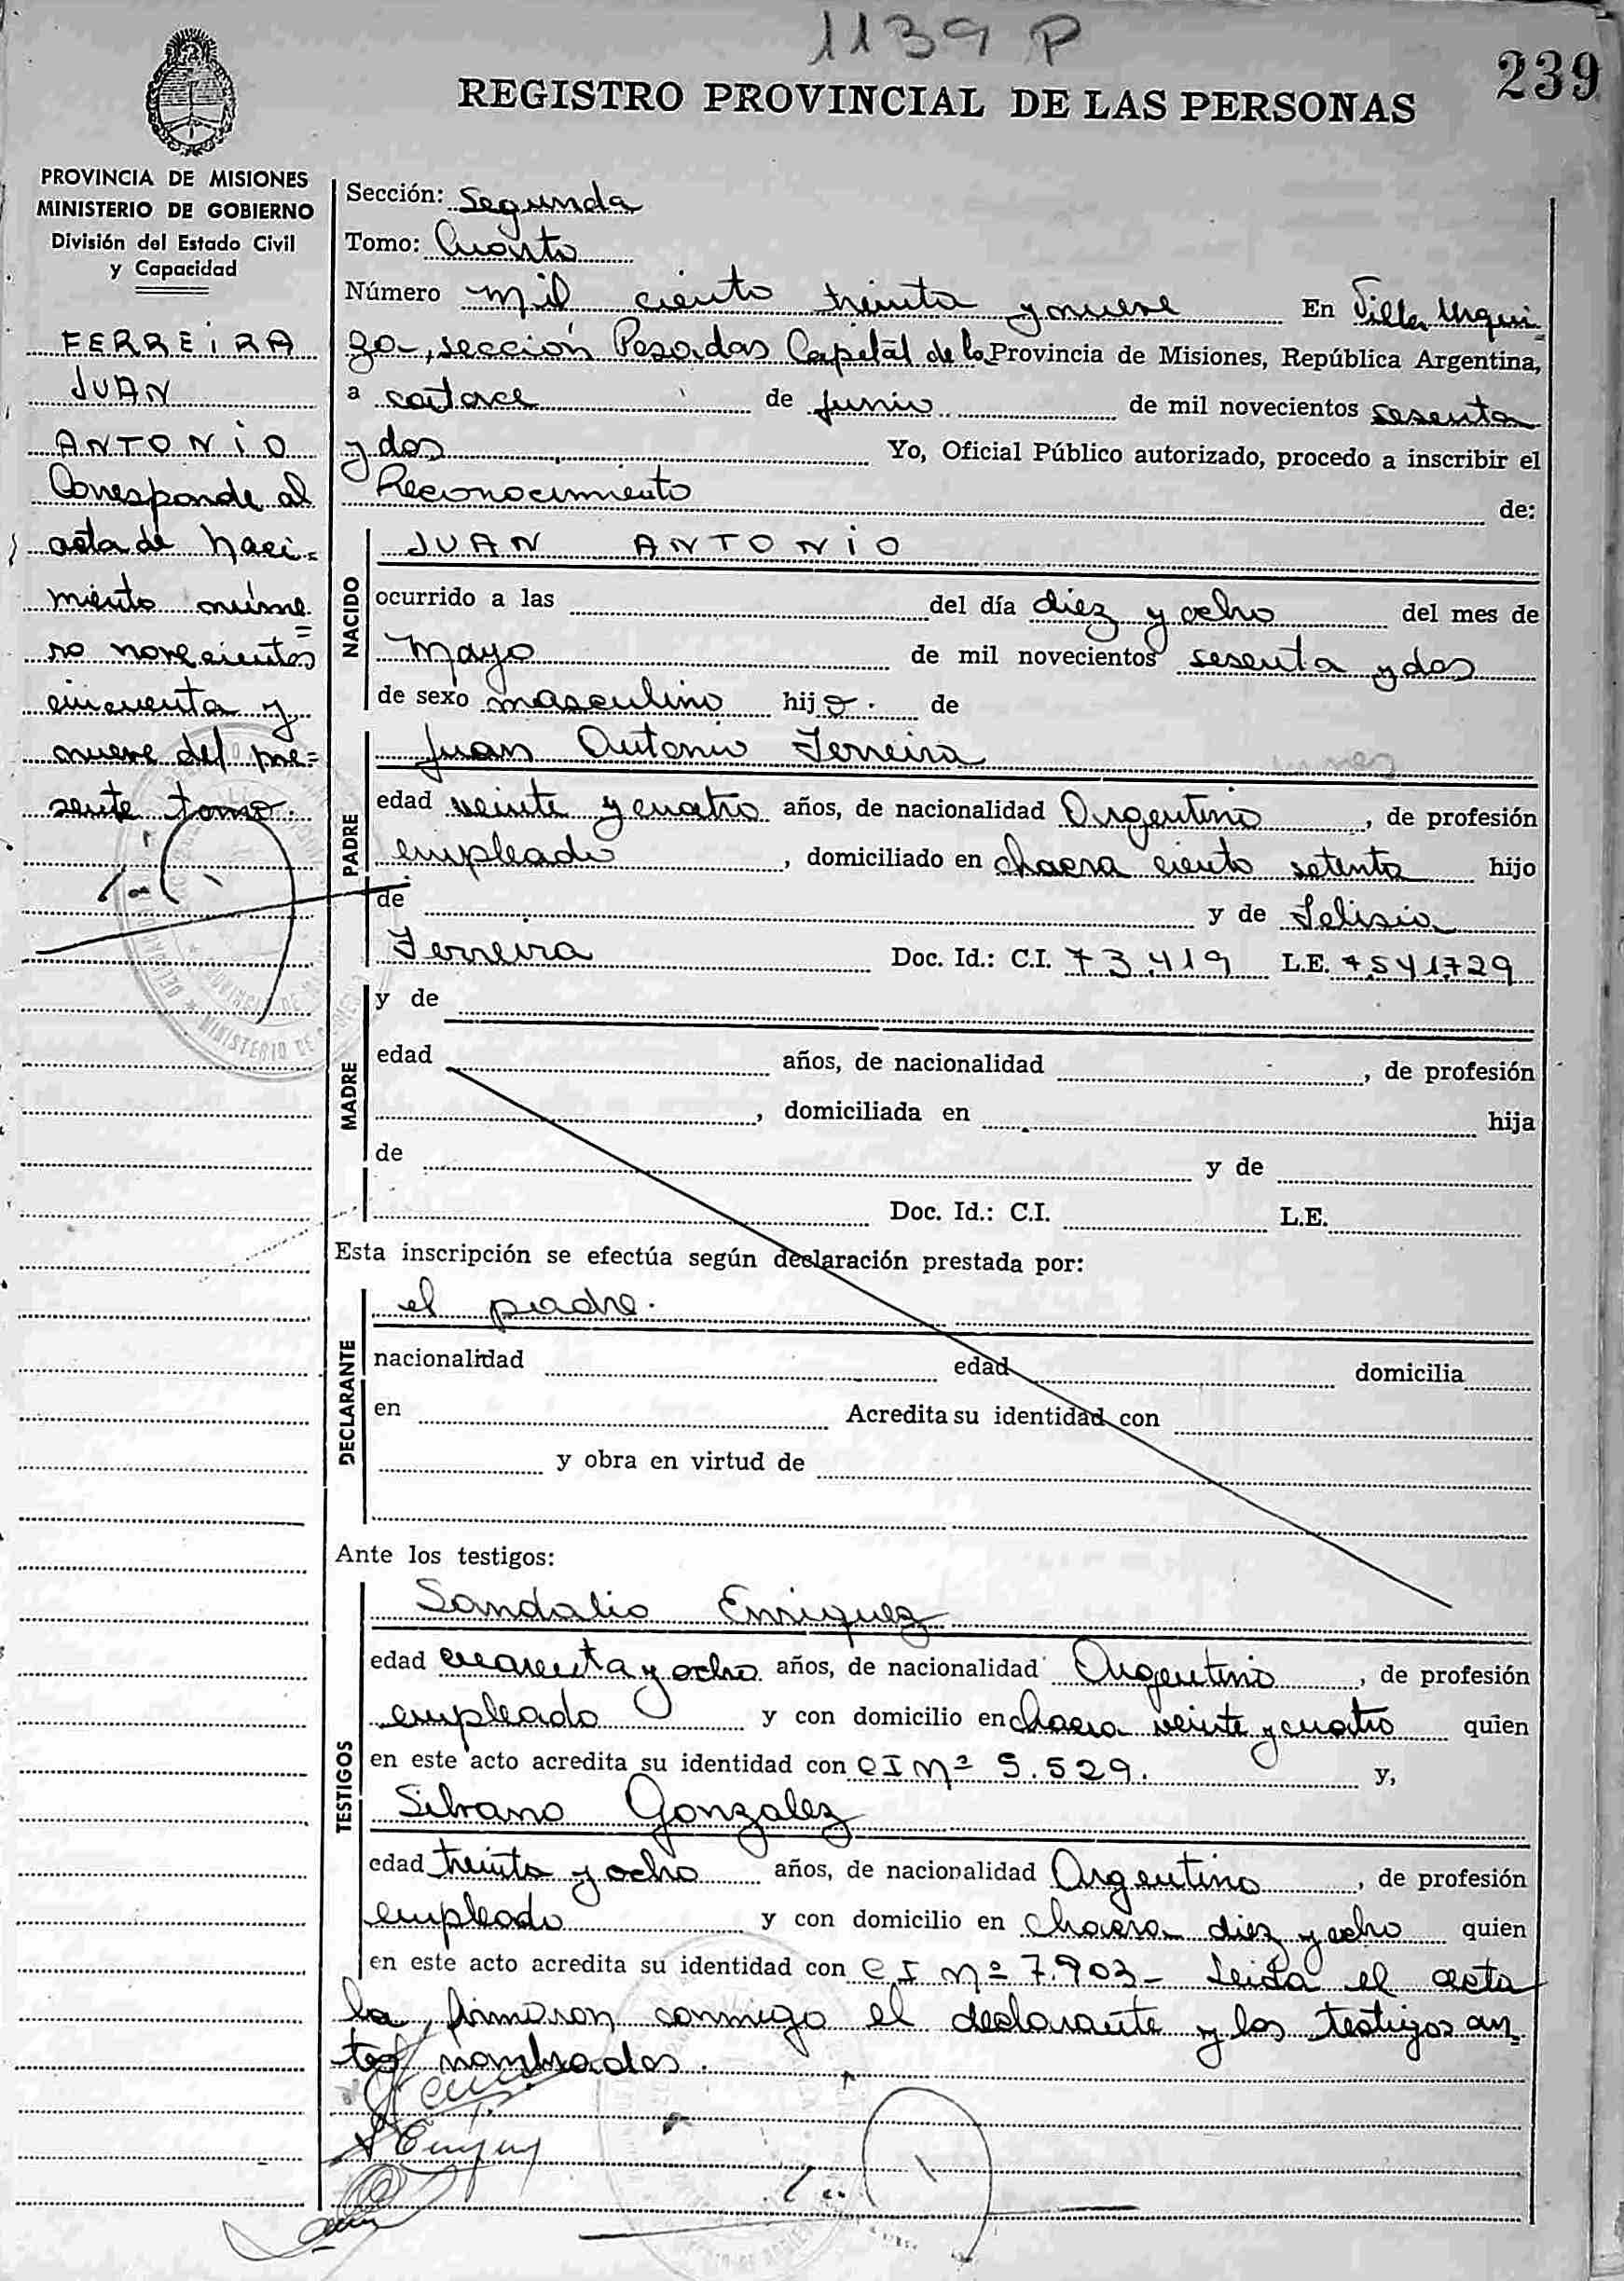 1139 P
239
REGISTRO PROVINCIAL DE LAS PERSONAS
PROVINCIA DE MISIONES
MINISTERIO DE GOBIERNO
División del Estado Civil
y Capacidad
FERREIRA
JUAN
ANTONIO
Corresponde al
acta de naci=
miento núme=
ro novecientos
cincuenta y
nueve del pre=
sente tomo.
Sección: Segunda
Tomo: Cuarto
Número mil ciento treinta y nueve En Villa Urqui
za-, sección Posadas Capital de la Provincia de Misiones, República Argentina,
a catorce de Junio de mil novecientos sesenta
y dos Yo, Oficial Público autorizado, procedo a inscribir el
Reconocimiento de:
NACIDO
JUAN ANTONIO
ocurrido a las del día diez y ocho del mes de
mayo de mil novecientos sesenta y dos
de sexo masculino hijo. de
PADRE
Juan Antonio Ferreira
edad veinte y cuatro años, de nacionalidad Argentino, de profesión
empleado, domiciliado en chacra ciento setenta hijo
de y de Felisia
Ferreira Doc. Id.: C.I. 73.419 L.E. 7.541.729
MADRE
y de
edad años, de nacionalidad , de profesión
, domiciliada en hija
de y de
Doc. Id.: C.I. L.E.
Esta inscripción se efectúa según declaración prestada por:
DECLARANTE
el padre.
nacionalidad edad domicilia
en Acredita su identidad con
y obra en virtud de
Ante los testigos:
TESTIGOS
Sandalio Enriquez
edad cuarenta y ocho años, de nacionalidad Argentino, de profesión
empleado y con domicilio en chacra veinte y cuatro quien
en este acto acredita su identidad con C I Nº 5.529. y,
Silvano Gonzalez
edad treinta y ocho años, de nacionalidad Argentino, de profesión
empleado y con domicilio en chacra diez y ocho quien
en este acto acredita su identidad con C I Nº 7.903- Leida el acta
la, firmaron conmigo el declarante y los testigos an
tes nombrados.